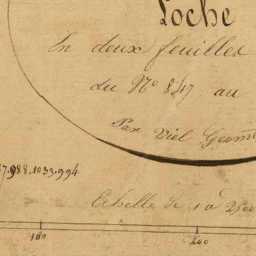 Loche
En deux feuilles
du N° 847 au
Par Viel Géom
7.988.1033.994
Echelle de 1 à 2500
100
200